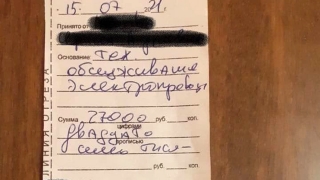 15. 07 21.
Принято от
Основание: тех
обслуживание
электропроводк
Сумма 27000 руб. коп.
цифрами
двадцать
прописью
семь тысяч
руб. коп.
ЛИНИЯ ОТРЕЗА